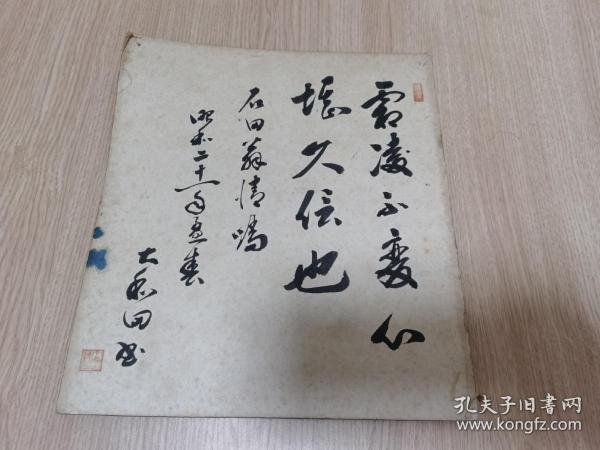 霜凌不變心
堪久信也
石田翁清嘱
昭和二十一年孟春
大和田書
孔夫子旧书网
www.kongfz.com